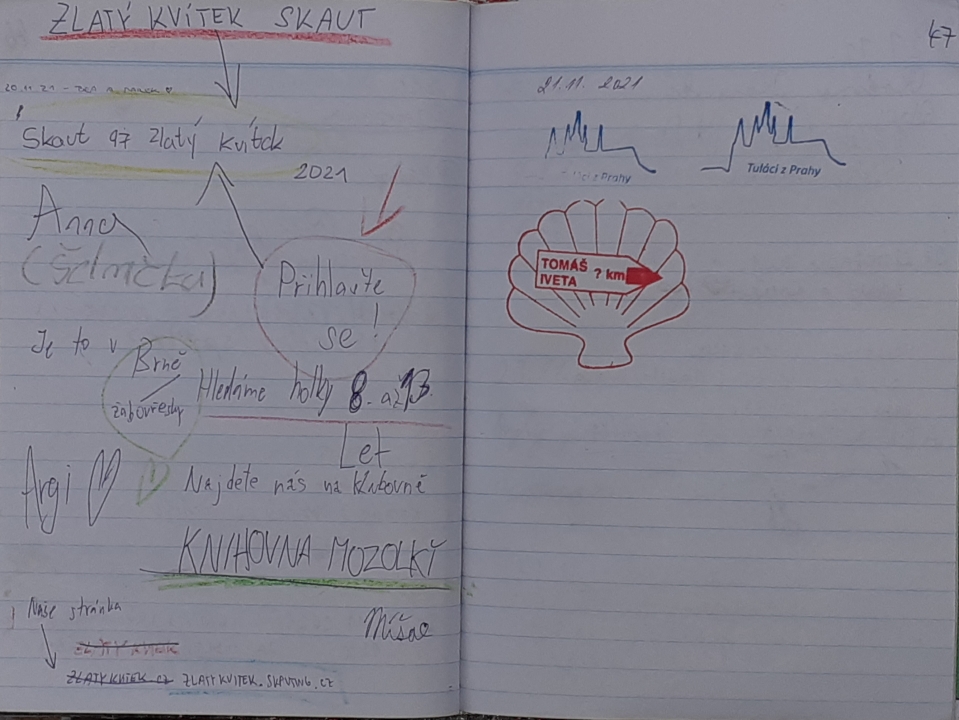 ZLATÝ KVÍTEK SKAUT
20.11.21 -
Skaut 97 Zlatý kvítek
2021
Anna
Přihlašte
se!
Je to v
Brně
žabovřesky
Hledáme holky 8. až 13.
Let
Argi
Najdete nás na klubovně
KNIHOVNA MOZOLKY
Naše stránka
Míša
ZLATÝ KVÍTEK
ZLATYKVITEK.CZ ZLATYKVITEK.SKAUTING.CZ
47
21.11. 2021
z Prahy
Tuláci z Prahy
TOMÁŠ ? km
IVETA